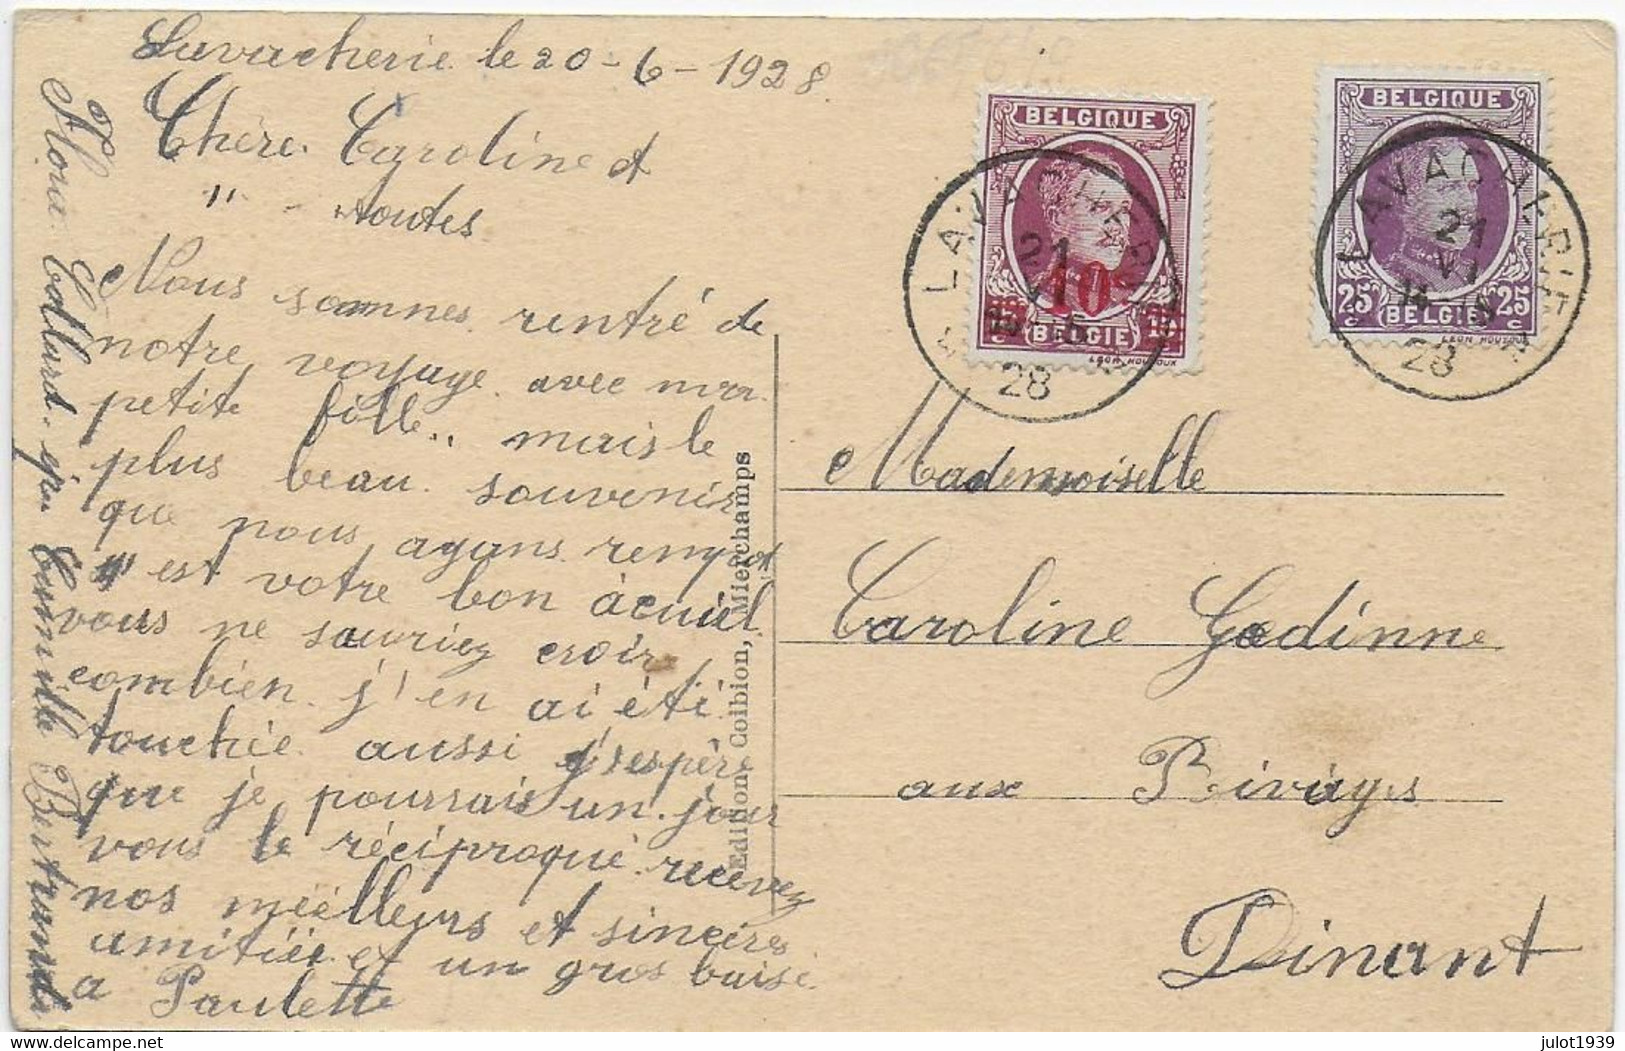 Lavacherie le 20-6-1928.
Chère Caroline et
" - toutes
Nous sommes rentré de
notre voyage avec ma
petite fille.. mais le
plus beau souvenir
que nous ayans remp
est votre bon acuiel
vous ne sauriez croir
combien j'en ai été
touchée aussi j'espère
que je pourrais un jour
vous le réciproqué recevez
nos meilleurs et sincères
amitiée et un gros baisé
a Paulette
Flora Collard Bertrande
Edition Colbion, Mierchamps
BELGIQUE
10
BELGIE
LEON HOUYOUX
LAVACHERIE
21
VI
28
BELGIQUE
25c BELGIE 25c
LEON HOUYOUX
LAVACHERIE
21
VI
14-15
28
Mademoiselle
Caroline Godinne
aux Rivages
Dinant
julot1939